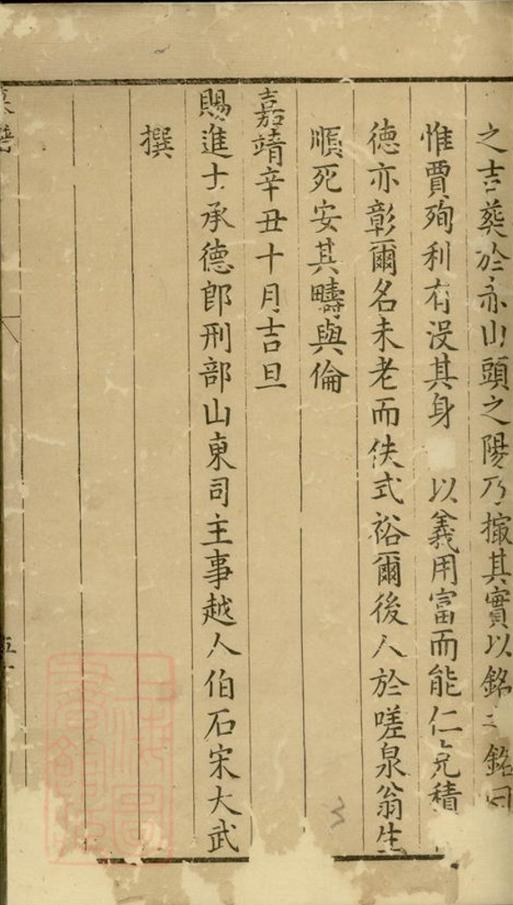 之吉葵於赤山頭之陽乃撮其實以銘之銘曰
惟賈殉利有没其身 以義用富而能仁克積
德亦彰爾名未老而佚式裕爾後人於嗟泉翁生
順死安其疇與倫
嘉靖辛丑十月吉旦
賜進士承德郎刑部山東司主事越人伯石宋大武
撰